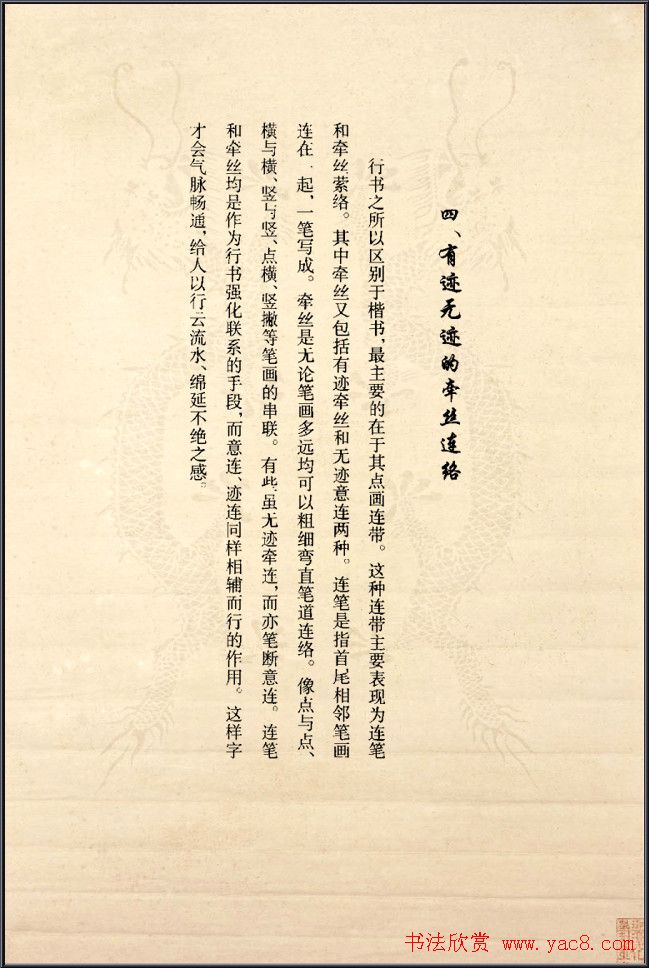 四、有迹无迹的牵丝连络
行书之所以区别于楷书，最主要的在于其点画连带。这种连带主要表现为连笔
和牵丝萦络。其中牵丝又包括有迹牵丝和无迹意连两种。连笔是指首尾相邻笔画
连在一起，一笔写成。牵丝是无论笔画多远均可以粗细弯直笔道连络。像点与点、
横与横、竖与竖、点横、竖撇等笔画的串联。有些虽无迹牵连，而亦笔断意连。连笔
和牵丝均是作为行书强化联系的手段，而意连、迹连同样相辅而行的作用。这样字
才会气脉畅通，给人以行云流水、绵延不绝之感。
书法欣赏 www.yac8.com